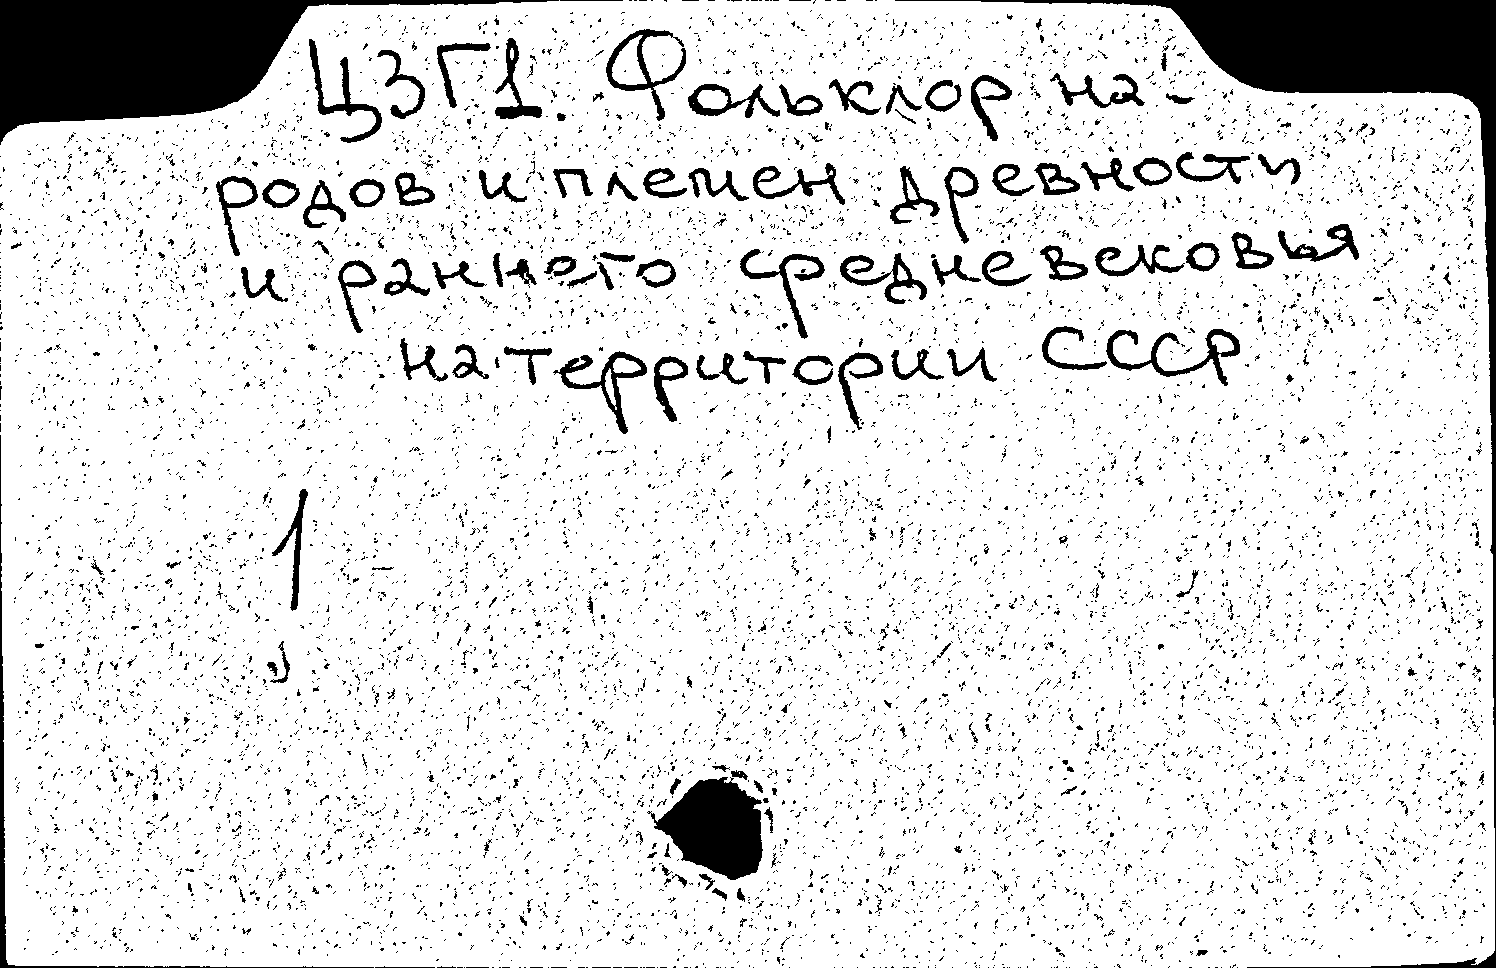 Ц3Г1. Фольклор на-
родов и племен древности
и раннего средневековья
на территории СССР
1